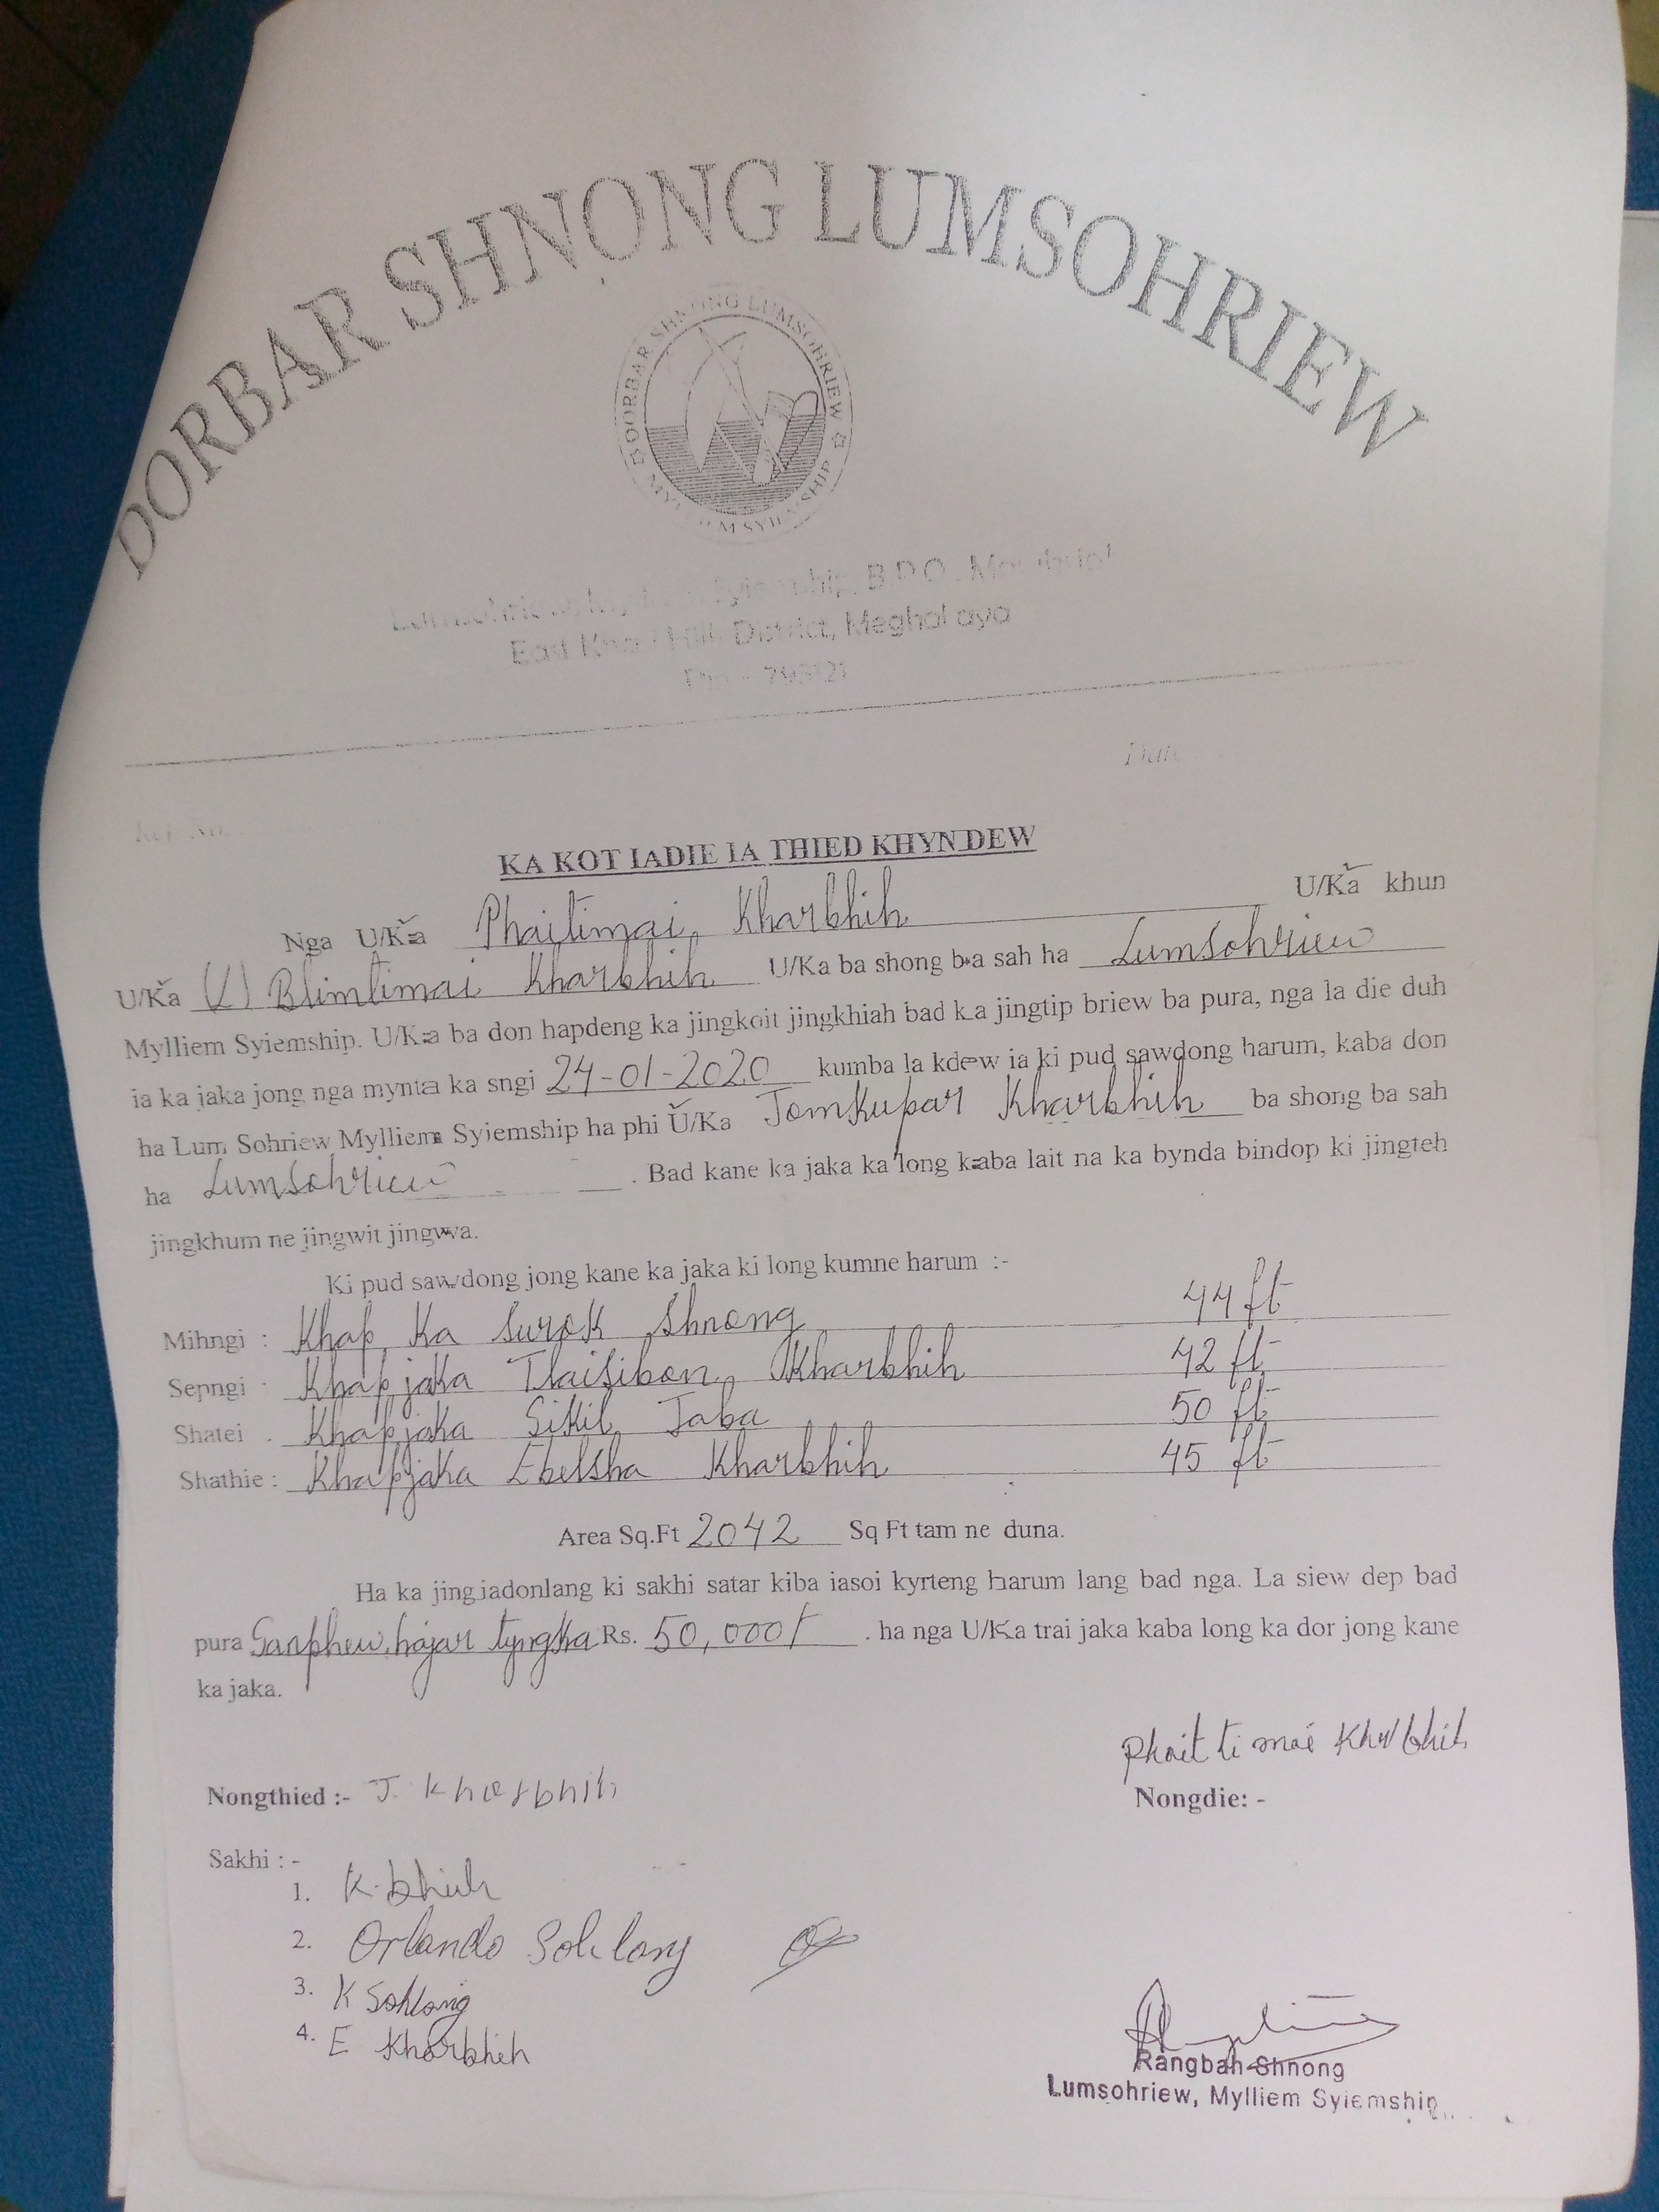 DORBAR SHNONG LUMSOHRIEW
DORBAR SHNONG LUMSOHRIEW
Syiemship, B.P.O.
East Khasi Hills District, Meghalaya
Pin - 793121
Date
KA KOT IADIE IA THIED KHYNDEW
Nga U/Ka Phaitimai Kharbhih U/Ka khun
U/Ka (L) Blimtimai Kharbhih U/Ka ba shong ba sah ha Lumsohriew
Mylliem Syiemship. U/Ka ba don hapdeng ka jingkoit jingkhiah bad ka jingtip briew ba pura, nga la die duh
ia ka jaka jong nga mynta ka sngi 24-01-2020 kumba la kdew ia ki pud sawdong harum, kaba don
ha Lum Sohriew Mylliem Syiemship ha phi U/Ka Jomkupar Kharbhih ba shong ba sah
ha Lumsohriew . Bad kane ka jaka ka long kaba lait na ka bynda bindop ki jingteh
jingkhum ne jingwit jingwa.
Ki pud sawdong jong kane ka jaka ki long kumne harum :-
Mihngi : Khap Ka Surok Shnong 44 ft
Sepngi : Khapjaka Tlaisibon Kharbhih 42 ft
Shatei : Khapjaka Sikil Taba 50 ft
Shathie : Khapjaka Ebelsha Kharbhih 45 ft
Area Sq.Ft 2042 Sq Ft tam ne duna.
Ha ka jingiadonlang ki sakhi satar kiba iasoi kyrteng harum lang bad nga. La siew dep bad
pura Sanphew hajar tyngka Rs. 50,000/ . ha nga U/Ka trai jaka kaba long ka dor jong kane
ka jaka.
Phait ti mai Kharbhih
Nongthied :- J. Kharbhih Nongdie: -
Sakhi : -
1. K. bhih
2. Orlando Sohlang
3. K Sohlang
4. E Kharbhih
Rangbah Shnong
Lumsohriew, Mylliem Syiemship